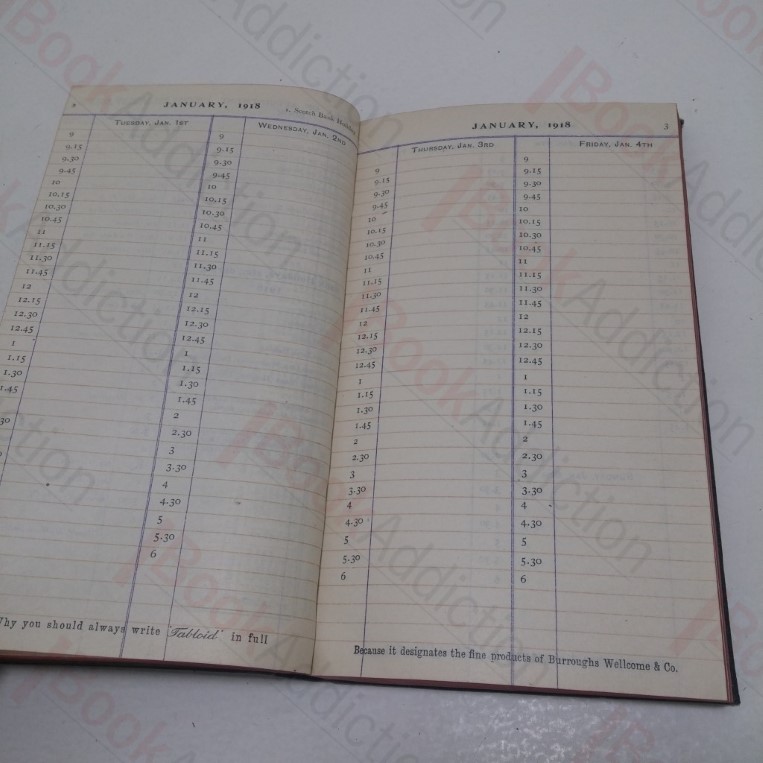 2
JANUARY, 1918
1. Scotch Bank
TUESDAY, JAN. 1ST
9
9.15
9.30
9.45
10
10.15
10.30
10.45
11
11.15
11.30
11.45
12
12.15
12.30
12.45
1
1.15
1.30
1.45
WEDNESDAY, JAN. 2ND
9
9.15
9.30
9.45
10
10.15
10.30
10.45
11
11.15
11.30
11.45
12
12.15
12.30
12.45
1
1.15
1.30
1.45
2
2.30
3
3.30
4
4.30
5
5.30
6
Why you should always write 'Tabloid' in full
JANUARY, 1918
3
THURSDAY, JAN. 3RD
9
9.15
9.30
9.45
10
10.15
10.30
10.45
11
11.15
11.30
11.45
12
12.15
12.30
12.45
1
1.15
1.30
1.45
2
2.30
3
3.30
4
4.30
5
5.30
6
FRIDAY, JAN. 4TH
9
9.15
9.30
9.45
10
10.15
10.30
10.45
11
11.15
11.30
11.45
12
12.15
12.30
12.45
1
1.15
1.30
1.45
2
2.30
3
3.30
4
4.30
5
5.30
6
Because it designates the fine products of Burroughs Wellcome & Co.
BookAddiction